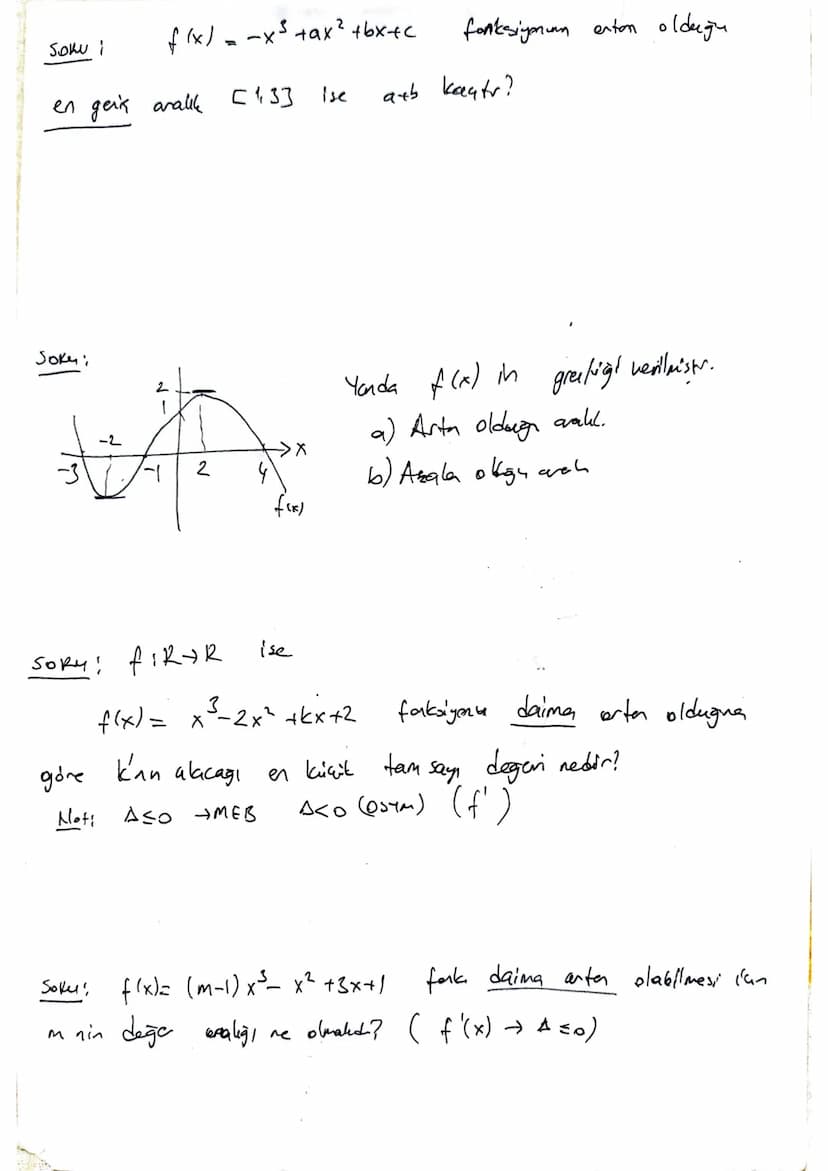 Soru: f(x) = -x³ + ax² + bx + c fonksiyonun artan olduğu
en geniş aralık [1,3] ise a+b kaçtır?
Soru:
Yanda f(x) in grafiği verilmiştir.
2
1
a) Artan olduğu aralık.
-2
x
-3 -1 2 4
b) Azala olduğu aralı
f(x)
Soru: f: R→R ise
f(x) = x³ - 2x² + kx + 2 fonksiyonu daima artan olduğuna
göre k'nın alacağı en küçük tam sayı değeri nedir?
Not: Δ≤0 →MEB Δ<0 (ÖSYM) (f')
Soru: f(x) = (m-1)x³ - x² + 3x + 1 fonk. daima artan olabilmesi için
m nin değer aralığı ne olmalıdı? ( f'(x) → Δ≤0)